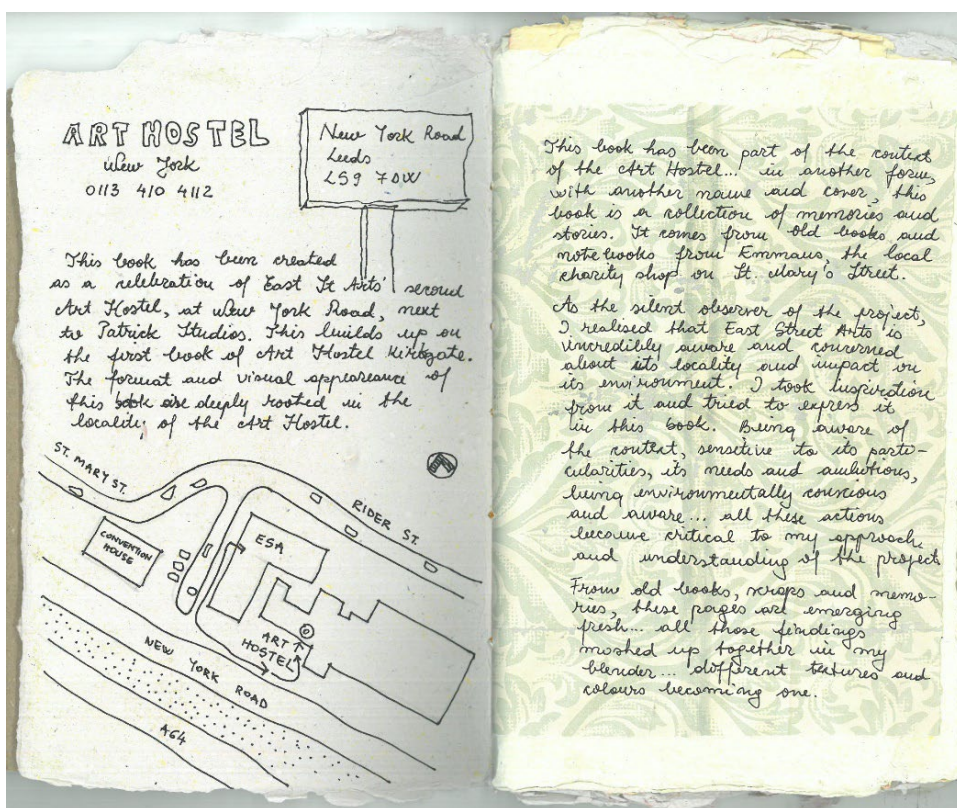 ART HOSTEL
New York
0113 410 4112
New York Road
Leeds
LS9 7DW
This book has been created
as a celebration of East St Arts' second
Art Hostel, at New York Road, next
to Patrick Studios. This builds up on
the first book of Art Hostel Kirkgate.
The format and visual appeareance of
this book are deeply rooted in the
locality of the Art Hostel.
ST. MARY ST.
RIDER ST.
CONVENTION
HOUSE
ESA
ART
HOSTEL
NEW YORK ROAD
A64
This book has been part of the context
of the Art Hostel... in another form,
with another name and cover, this
book is a collection of memories and
stories. It comes from old books and
notebooks from Emmaus, the local
charity shop on St. Mary's Street.
As the silent observer of the project,
I realised that East Street Arts is
incredibly aware and concerned
about its locality and impact on
its environment. I took inspiration
from it and tried to express it
in this book. Being aware of
the context, sensitive to its parti-
cularities, its needs and ambitions,
being environmentally conscious
and aware... all these actions
became critical to my approach
and understanding of the project.
From old books, scraps and memo-
ries, these pages are emerging
fresh... all those findings
mashed up together in my
blender... different textures and
colours becoming one.